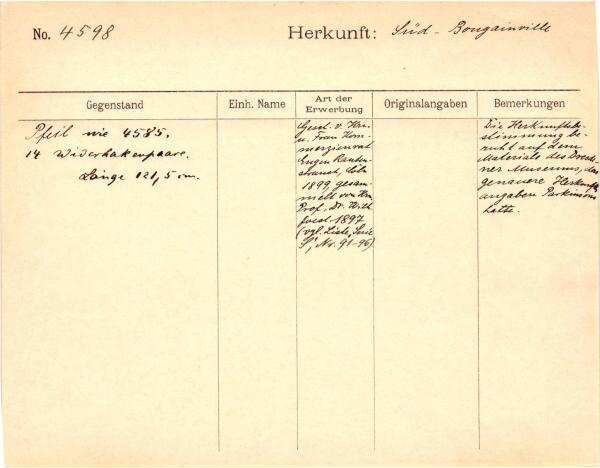 No. 4598
Herkunft: Süd - Bougainville
Gegenstand
Einh. Name
Art der
Erwerbung
Originalangaben
Bemerkungen
Pfeil wie 4585.
14 Widerhakenpaare.
Länge 121,5 cm.
Gesch. v. Hrn.
u. Frau Kom-
merzienrat
Eugen Rauten-
strauch, Cöln
1899, gesam-
melt von Hrn.
Prof. Dr. Wilh.
Joest 1897
(vgl. Liste, Serie
S, Nr. 91-96)
Die Herkunftsbe-
stimmung be-
ruht auf dem
Materiale des Dresde-
ner Museums, das
genauere Herkunfts-
angaben Parkinsons
hatte.